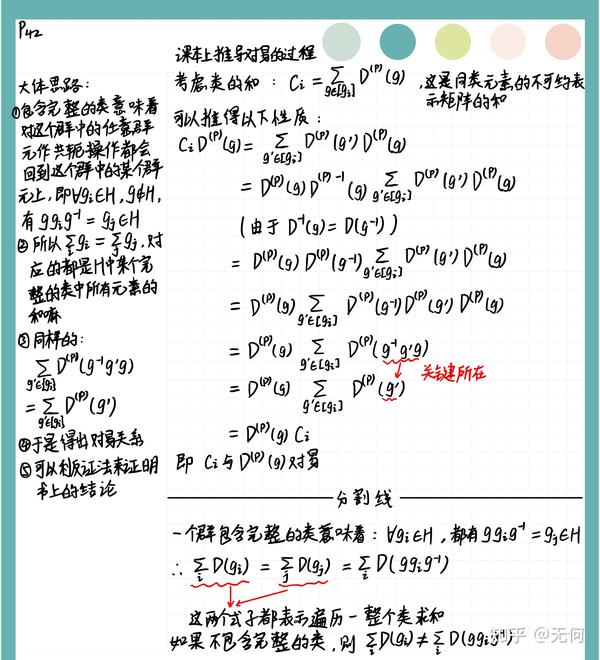 P42
大体思路:
①包含完整的类意味着
对这个群中的任意群
元作共轭操作都会
回到这个群中的某个群
元上,即∀gᵢ∈H, g∉H,
有 ggᵢg⁻¹ = gⱼ∈H
②所以 Σᵢ gᵢ = Σⱼ gⱼ, 对
应的都是H中某个完
整的类中所有元素的
和嘛
③同样的:
Σ_{g'∈[gᵢ]} D⁽ᵖ⁾(g⁻¹g'g)
= Σ_{g'∈[gᵢ]} D⁽ᵖ⁾(g')
④于是得出对易关系
⑤可以利反证法来证明
书上的结论
课本上推导对易的过程
考虑类的和: Cᵢ = Σ_{g∈[gᵢ]} D⁽ᵖ⁾(g) ,这是同类元素的不可约表
示矩阵的和
可以推得以下性质:
CᵢD⁽ᵖ⁾(g) = Σ_{g'∈[gᵢ]} D⁽ᵖ⁾(g') D⁽ᵖ⁾(g)
= D⁽ᵖ⁾(g) D⁽ᵖ⁾⁻¹(g) Σ_{g'∈[gᵢ]} D⁽ᵖ⁾(g') D⁽ᵖ⁾(g)
(由于 D⁻¹(g) = D(g⁻¹))
= D⁽ᵖ⁾(g) D⁽ᵖ⁾(g⁻¹) Σ_{g'∈[gᵢ]} D⁽ᵖ⁾(g') D⁽ᵖ⁾(g)
= D⁽ᵖ⁾(g) Σ_{g'∈[gᵢ]} D⁽ᵖ⁾(g⁻¹) D⁽ᵖ⁾(g') D⁽ᵖ⁾(g)
= D⁽ᵖ⁾(g) Σ_{g'∈[gᵢ]} D⁽ᵖ⁾(g⁻¹g'g)
= D⁽ᵖ⁾(g) Σ_{g'∈[gᵢ]} D⁽ᵖ⁾(g') 关键所在
= D⁽ᵖ⁾(g) Cᵢ
即 Cᵢ与D⁽ᵖ⁾(g)对易
分割线
一个群包含完整的类意味着: ∀gᵢ∈H, 都有ggᵢg⁻¹ = gⱼ∈H
∴ Σᵢ D(gᵢ) = Σⱼ D(gⱼ) = Σᵢ D(ggᵢg⁻¹)
这两个式子都表示遍历一整个类求和
如果不包含完整的类,则 Σᵢ D(gᵢ) ≠ Σᵢ D(ggᵢg⁻¹)
知乎 @无何